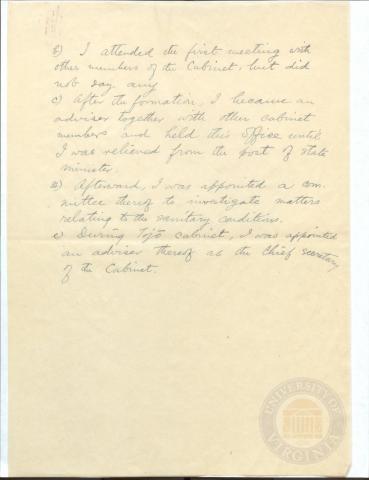 b) I attended the first meeting with
other members of the Cabinet, but did
not say any
c) After the formation, I became an
adviser together with other cabinet
members and held this office until
I was relieved from the post of state
minister.
d) Afterward, I was appointed a com-
mittee thereof to investigate matters
relating to the sanitary conditions.
e) During Tojo cabinet, I was appointed
an adviser thereof as the Chief secretary
of the Cabinet.
UNIVERSITY OF
VIRGINIA